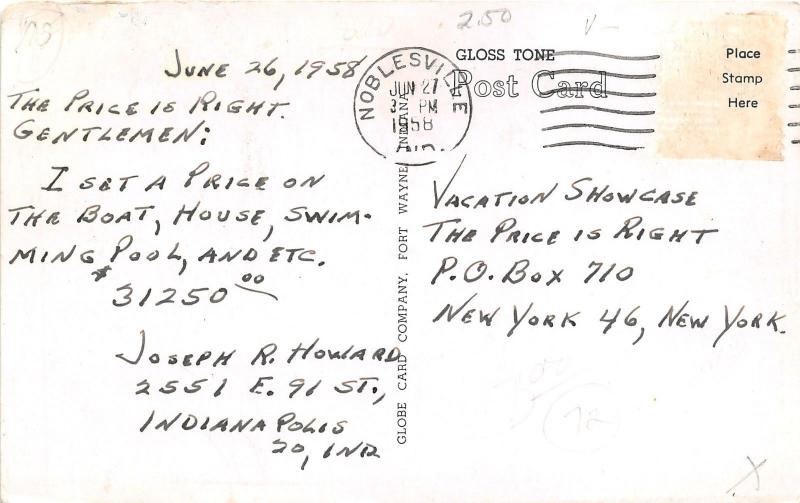 2.50
June 26, 1958
The Price is Right.
Gentlemen:
I set a Price on
the Boat, House, Swim-
ming Pool, and etc.
$31250.00
Joseph R. Howard
2551 E. 91 St.,
Indianapolis
20, Ind
GLOBE CARD COMPANY, FORT WAYNE, INDIANA
NOBLESVILLE
JUN 27
3 PM
1958
IND.
GLOSS TONE
Post Card
Place
Stamp
Here
Vacation Showcase
The Price is Right
P.O. Box 710
New York 46, New York.
X